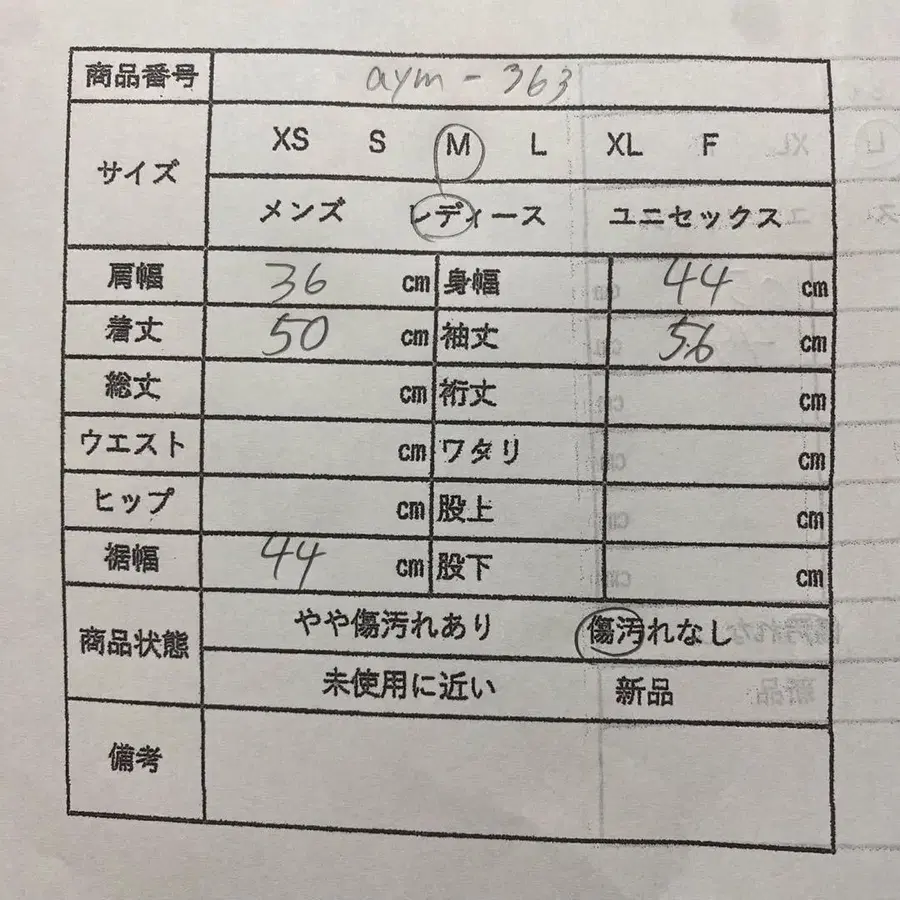 商品番号 aym-363
サイズ XS S M L XL F
メンズ レディース ユニセックス
肩幅 36 cm 身幅 44 cm
着丈 50 cm 袖丈 56 cm
総丈 cm 裄丈 cm
ウエスト cm ワタリ cm
ヒップ cm 股上 cm
裾幅 44 cm 股下 cm
商品状態 やや傷汚れあり 傷汚れなし
未使用に近い 新品
備考